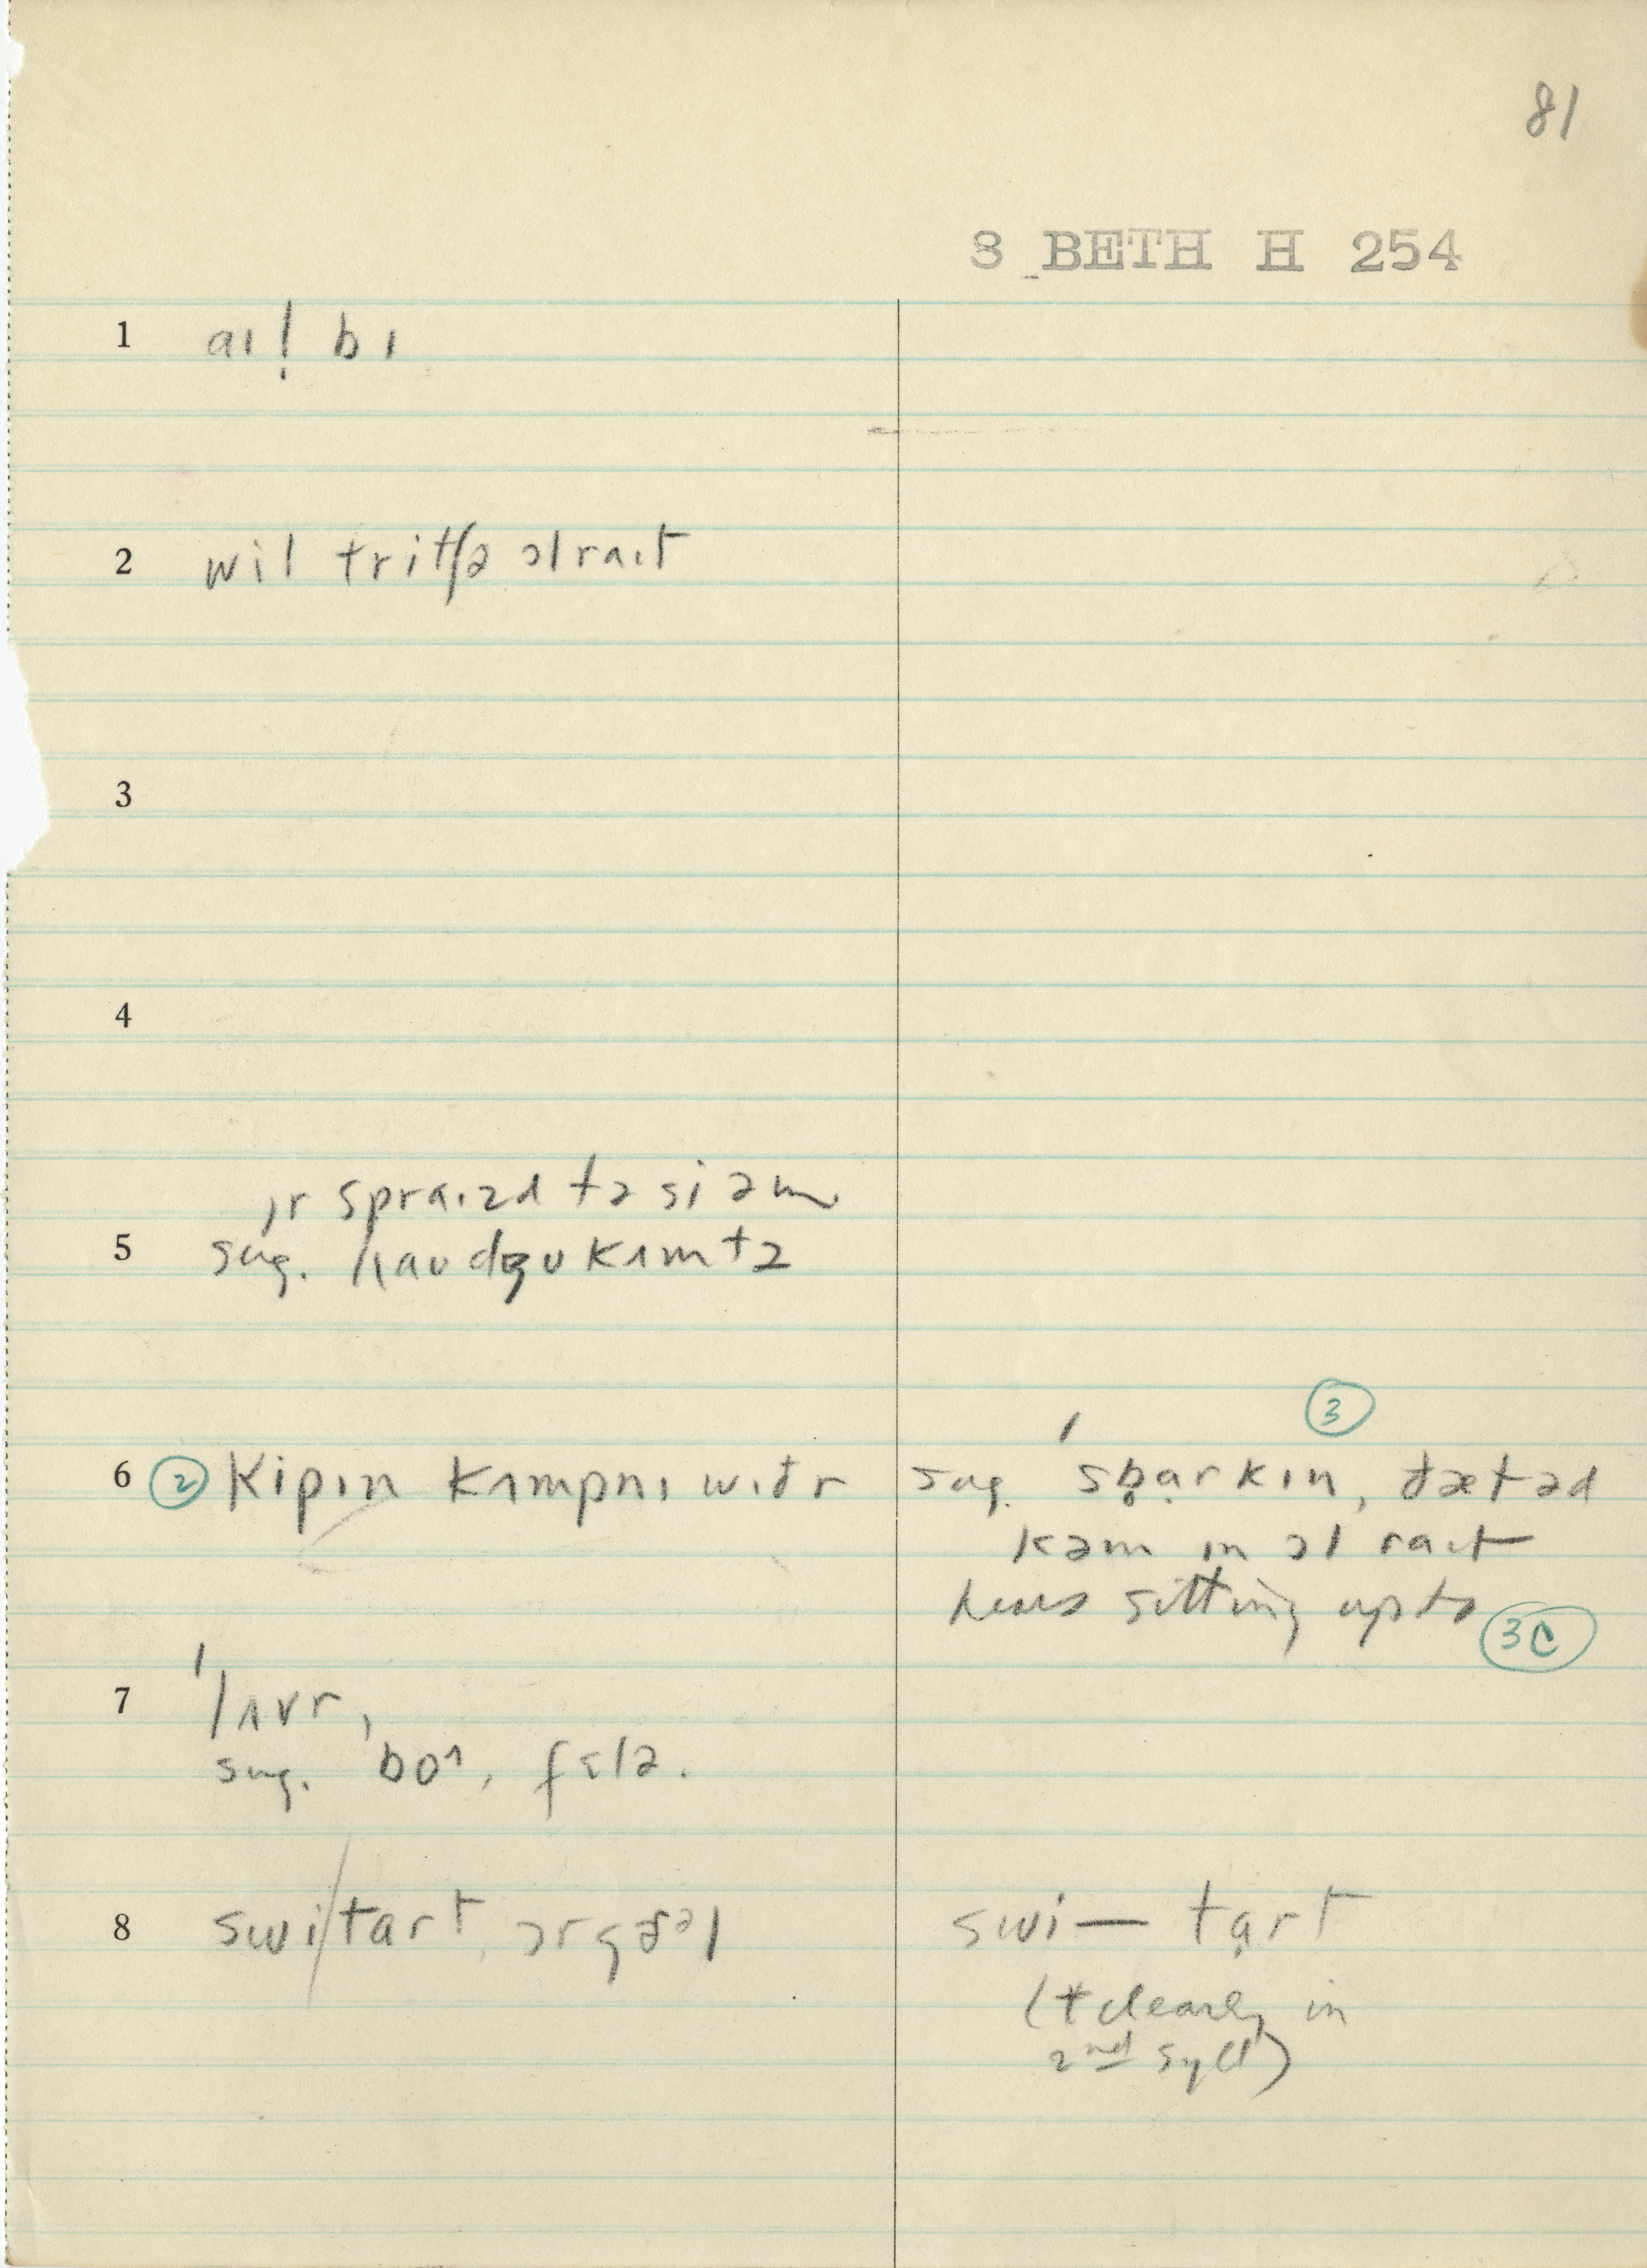 81
8 BETH H 254
1 aɪ! bɪ
2 wil tritʃə ɔlraɪt
3
4
ɪr spraɪzd tə si əm
5 sug. haʊ dʒu kʌm tə
3
6 2 kipɪn kʌmpnɪ wɪðr sug. ˈsb̥ɑrkɪn, ðætəd
kəm ɪn ɔl raɪt
hears sitting up to
3c
7 ˈlʌvr,
sug. bo^, fɛlə.
8 swi/tart swi— tɑrt
(t clearly in
2nd syll)